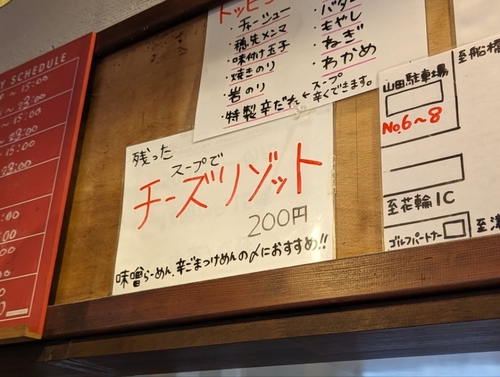 SCHEDULE
トッピ
・チャーシュー
・穂先メンマ
・味付け玉子
・焼きのり
・岩のり
・特製辛だれ←スープ辛くできます。
・バター
・もやし
・ねぎ
・わかめ
残った
スープで
チーズリゾット
200円
味噌らーめん、辛ごまつけめんの〆におすすめ!!
至船橋
山田駐車場
No.6~8
至花輪IC
ゴルフパートナー
至津